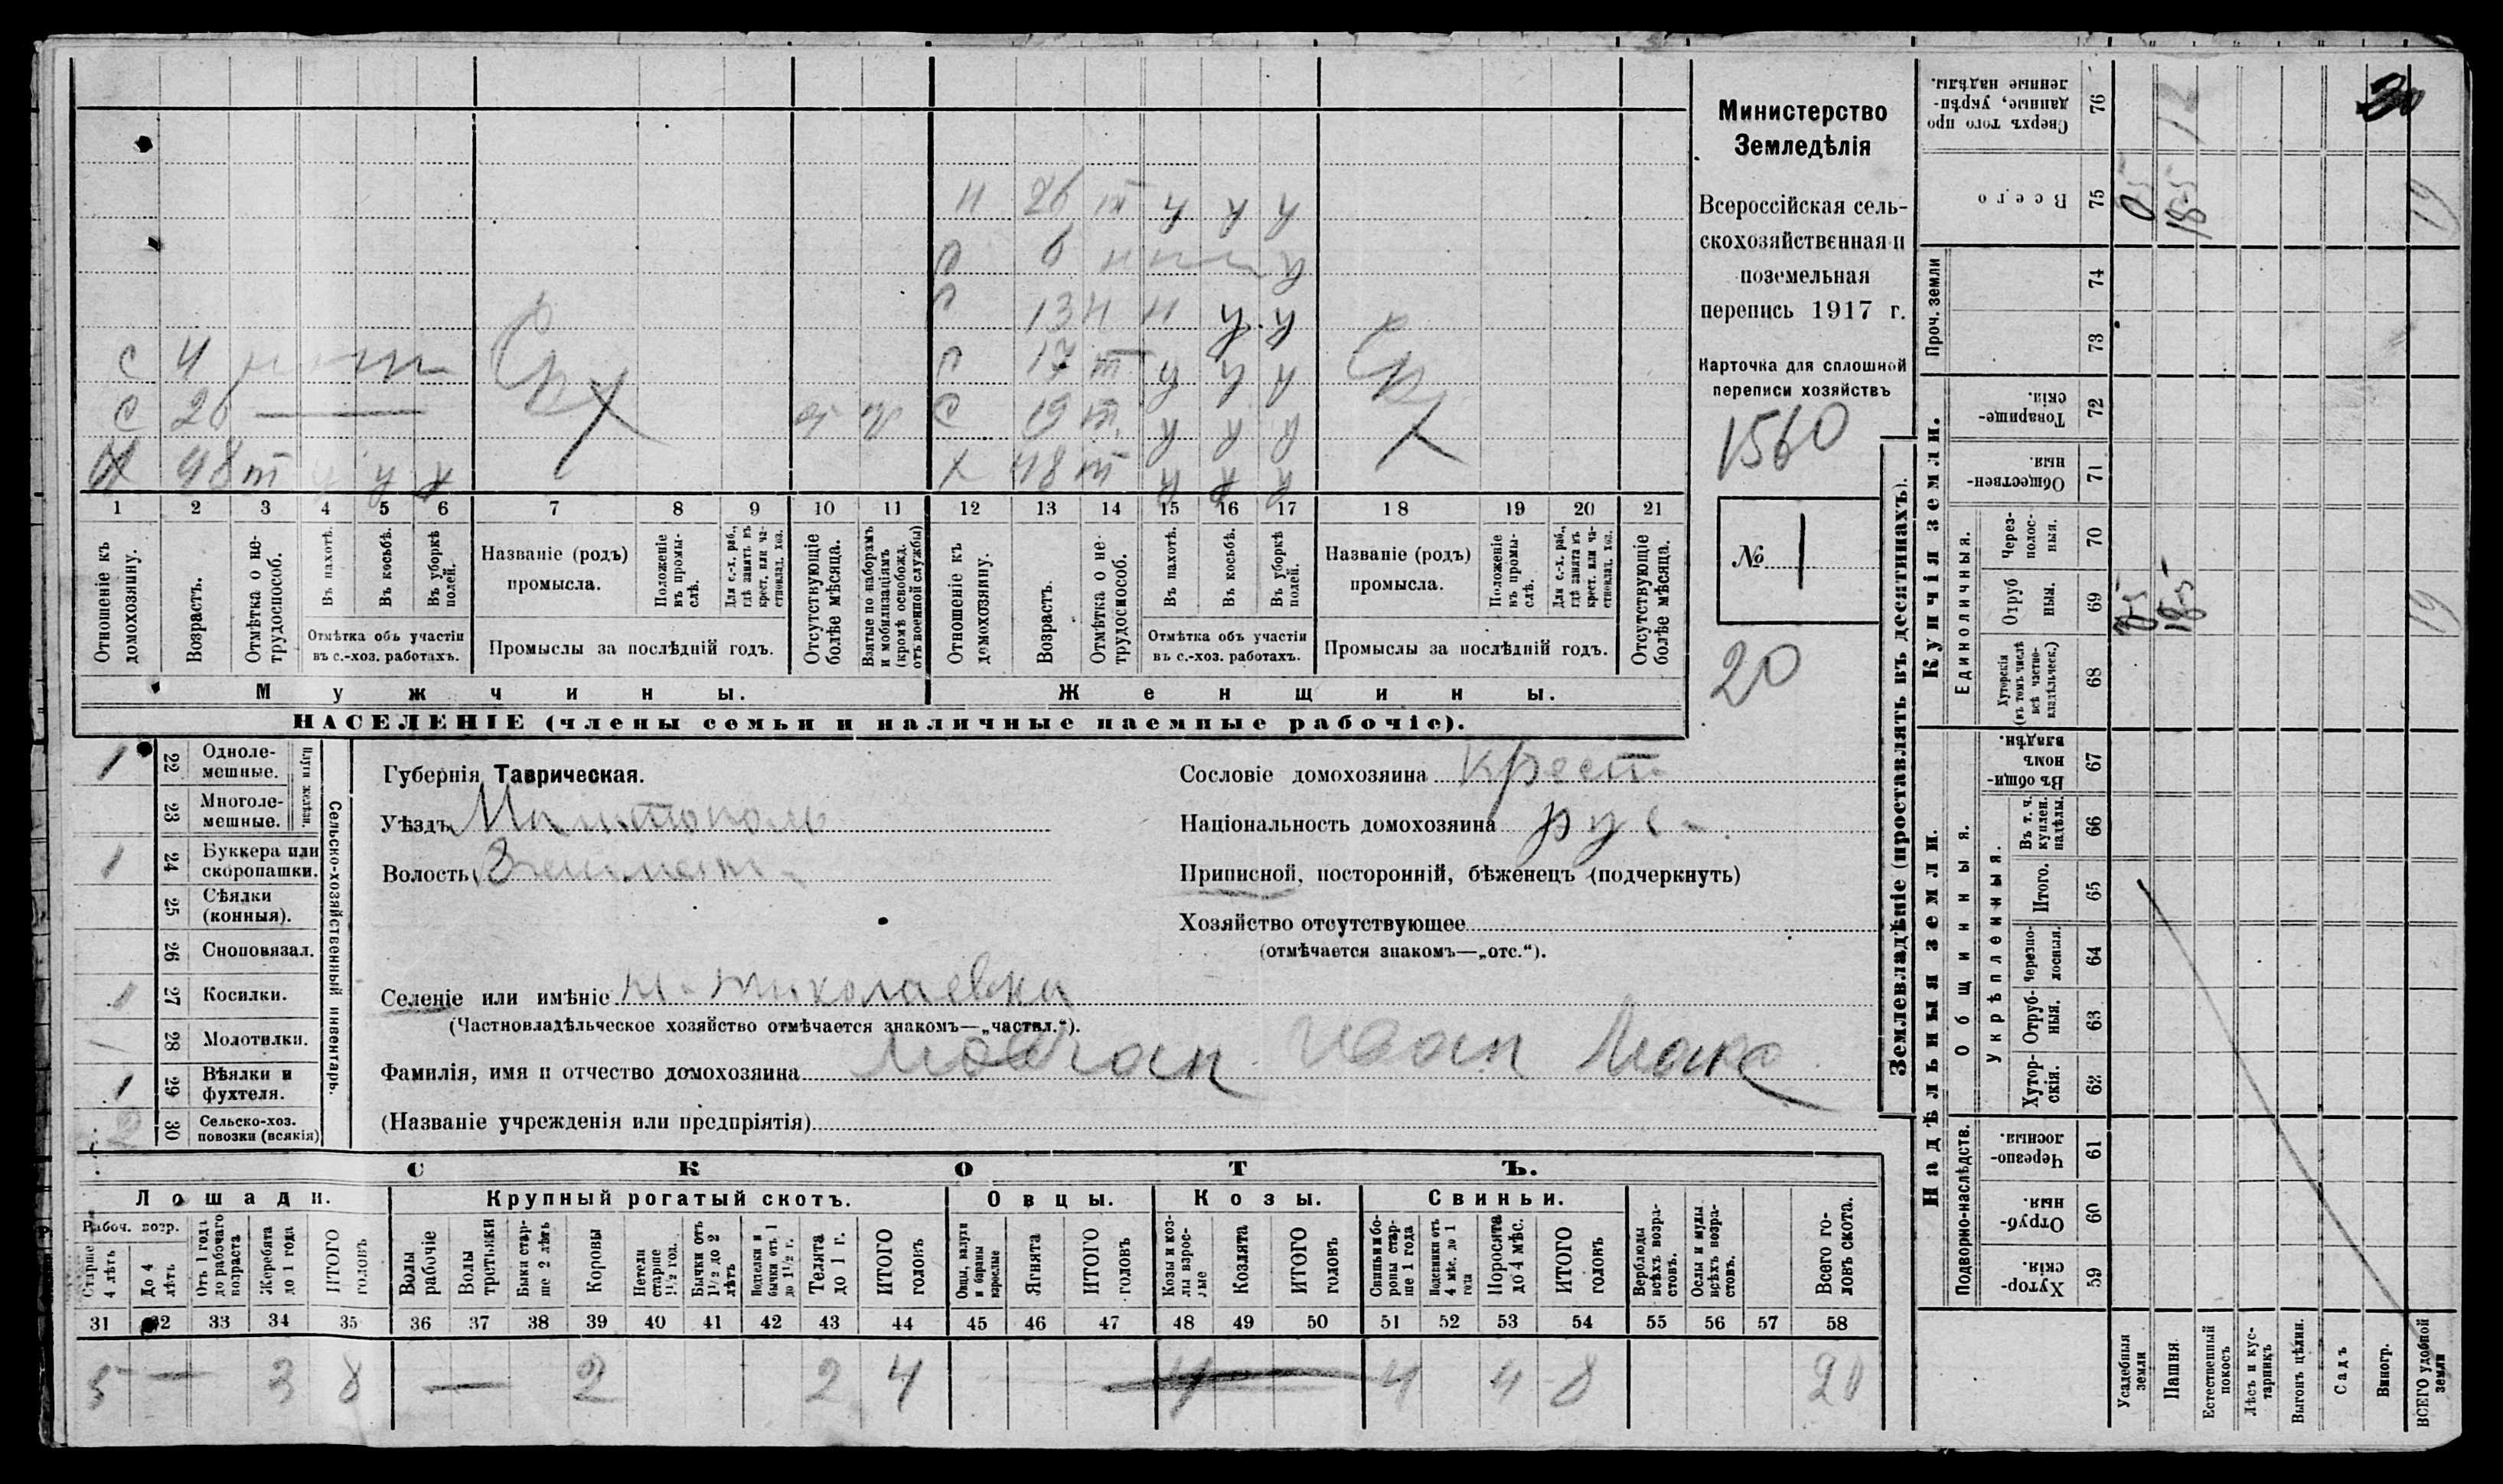 Министерство
Земледѣлія
Всероссійская сель-
скохозяйственная и
поземельная
перепись 1917 г.
Карточка для сплошной
переписи хозяйствъ
1560
№ 1
20
Н 26 т
6 н
13 н н
С 4
17 т
С 20
С 19 т
48 т
Х 48 т
1 2 3 4 5 6 7 8 9 10 11 12 13 14 15 16 17 18 19 20 21
Отношеніе къ домохозяину.
Возрастъ.
Отмѣтка о не-трудоспособ.
Въ пахотѣ.
Въ косьбѣ.
Въ уборкѣ полей.
Отмѣтка объ участіи
въ с.-хоз. работахъ.
Названіе (родъ)
промысла.
Положеніе въ промы-слѣ.
Для с.-х. раб., гдѣ занятъ въ крест. или ча-стновлад. хоз.
Промыслы за послѣдній годъ.
Отсутствующіе болѣе мѣсяца.
Взятые по наборамъ и мобилизаціямъ (кромѣ освобожд. отъ военной службы)
Отношеніе къ домохозяину.
Возрастъ.
Отмѣтка о не-трудоспособ.
Въ пахотѣ.
Въ косьбѣ.
Въ уборкѣ полей.
Отмѣтка объ участіи
въ с.-хоз. работахъ.
Названіе (родъ)
промысла.
Положеніе въ промы-слѣ.
Для с.-х. раб., гдѣ занята въ крест. или ча-стновлад. хоз.
Промыслы за послѣдній годъ.
Отсутствующіе болѣе мѣсяца.
Мужчины. Женщины.
НАСЕЛЕНІЕ (члены семьи и наличные наемные рабочіе).
1 22 Одноле-мешные.
23 Многоле-мешные.
Плуги желѣзн.
1 24 Буккера или скоропашки.
25 Сѣялки (конныя).
26 Сноповязал.
1 27 Косилки.
28 Молотилки.
1 29 Вѣялки и фухтеля.
2 30 Сельско-хоз. повозки (всякія)
Сельско-хозяйственный инвентарь.
Губернія Таврическая.
Уѣздъ Мелитополь
Волость
Селеніе или имѣніе Н-Николаевка
(Частновладѣльческое хозяйство отмѣчается знакомъ—„частвл.“).
Фамилія, имя и отчество домохозяина Мовчан Иван Макс
(Названіе учрежденія или предпріятія)
Сословіе домохозяина крест
Національность домохозяина рус-
Приписной, посторонній, бѣженецъ (подчеркнуть)
Хозяйство отсутствующее
(отмѣчается знакомъ—„отс.“).
СКОТЪ.
Лошади. Крупный рогатый скотъ. Овцы. Козы. Свиньи.
Рабоч. возр.
Старше 4 лѣтъ
До 4 лѣтъ
Отъ 1 года до рабочаго возраста
Жеребята до 1 года
ИТОГО головъ
Волы рабочіе
Волы третьяки
Быки стар-ше 2 лѣтъ
Коровы
Нетели старше 1½ год.
Бычки отъ 1½ до 2 лѣтъ
Подтелки и бычки отъ 1 до 1½ г.
Телята до 1 г.
ИТОГО головъ
Овцы, валухи и бараны взрослые
Ягнята
ИТОГО головъ
Козы и коз-лы взрос-лые
Козлята
ИТОГО головъ
Свиньи и бо-ровы стар-ше 1 года
Подсвинки отъ 4 мѣс. до 1 года
Поросята до 4 мѣс.
ИТОГО головъ
Верблюды всѣхъ возра-стовъ.
Ослы и мулы всѣхъ возра-стовъ.
Всего го-ловъ скота.
31 32 33 34 35 36 37 38 39 40 41 42 43 44 45 46 47 48 49 50 51 52 53 54 55 56 57 58
5 — 3 8 — 2 2 4 4 4 4 8 20
Землевладѣніе (проставлять въ десятинахъ).
Купчія земли.
Надѣльныя земли.
Сверхъ того про-данные, укрѣп-ленные надѣлы. 76
Всего 75
Проч. земли 74 73
Товарище-скія. 72
Обществен-ныя. 71
Единоличныя.
Через-полос-ныя. 70
Отруб-ныя. 69
Хуторскія (въ томъ числѣ всѣ частно-владѣльческ.) 68
Въ общи-номъ владѣн. 67
Общинныя.
Укрѣпленныя.
Въ т. ч. куплен. надѣлы. 66
Итого. 65
Черезпо-лосныя. 64
Отруб-ныя. 63
Хутор-скія. 62
Подворно-наслѣдств.
Черезпо-лосныя. 61
Отруб-ныя. 60
Хутор-скія. 59
Усадебныя земли
Пашня
Естественный покосъ
Лѣсъ и кус-тарникъ
Выгонъ цѣлин.
Садъ
Виногр.
ВСЕГО удобной земли
12
05
18-5
19
18-5
19